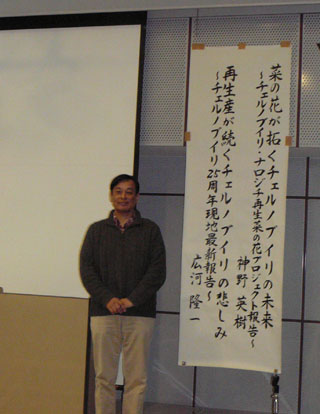 菜の花が拓くチェルノブイリの未来
~チェルノブイリ・ナロジチ再生菜の花プロジェクト報告~
神野 英樹
再生産が続くチェルノブイリの悲しみ
~チェルノブイリ25周年現地最新報告~
広河 隆一